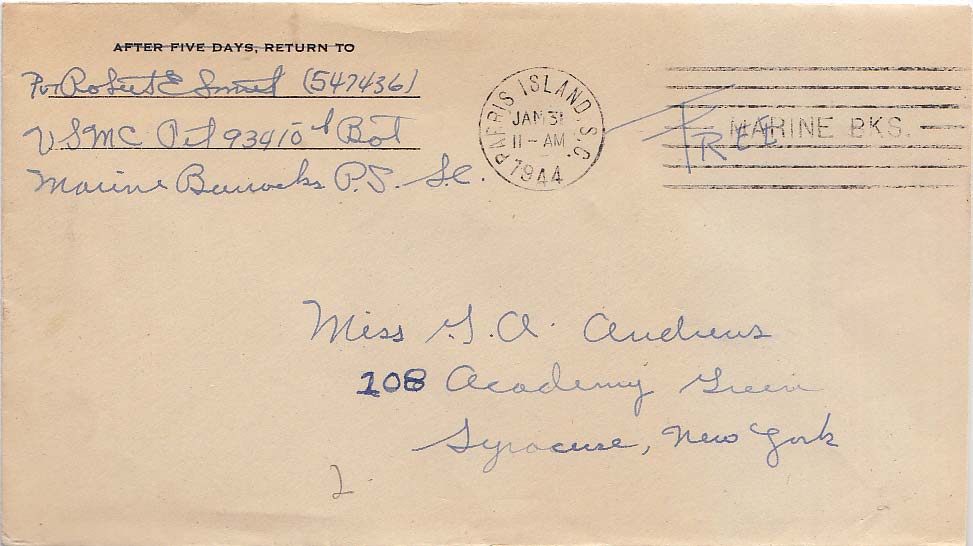 AFTER FIVE DAYS, RETURN TO
Pvt Robert E (547436)
USMC
Marine Barracks P.I. S.C.
PARRIS ISLAND, S.C.
JAN 31
11-AM
1944
MARINE BKS.
FREE
Miss G. A. Andrews
108 Academy Green
Syracuse, New York
2